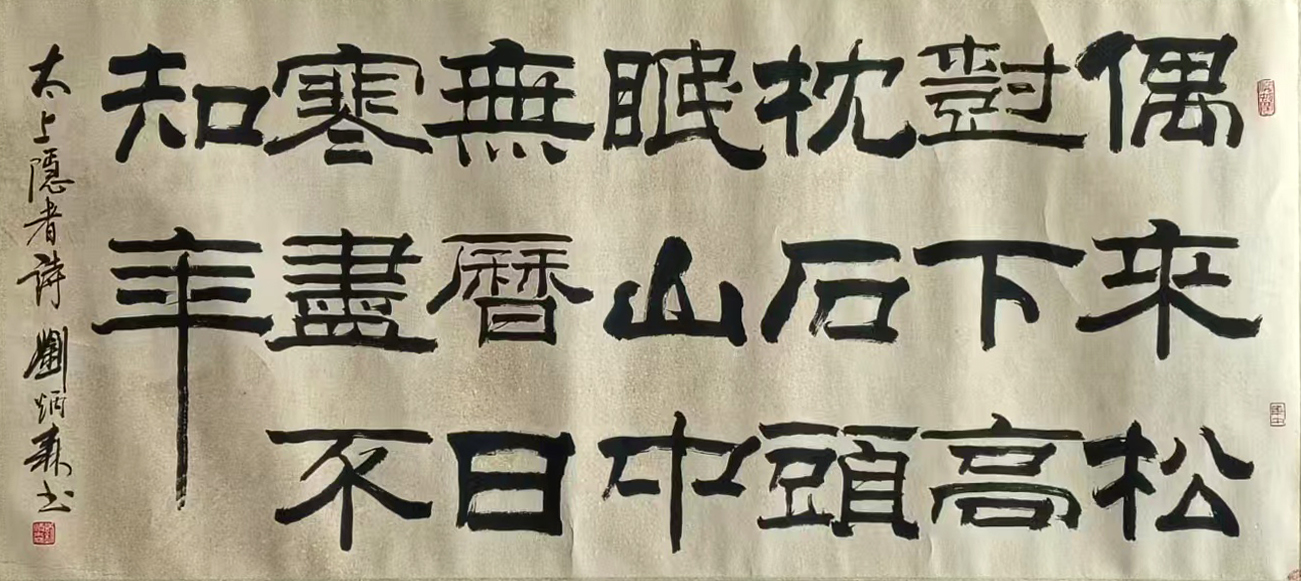 偶來松
樹下高
枕石頭
眠山中
無曆日
寒盡不
知年
太上隱者詩 劉炳森书